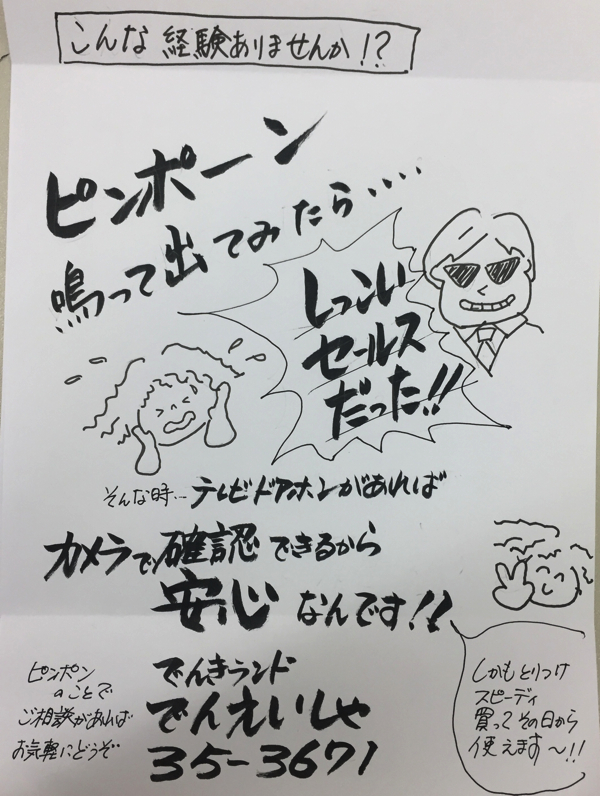 こんな経験ありませんか!?
ピンポーン
鳴って出てみたら‥‥
しつこい
セールス
だった!!
そんな時… テレビドアホンがあれば
カメラで確認できるから
安心なんです!!
ピンポン
のことで
ご相談があれば
お気軽にどうぞ
でんきランド
でんえいしゃ
35-3671
しかもとりつけ
スピーディ
買ってその日から
使えます〜!!